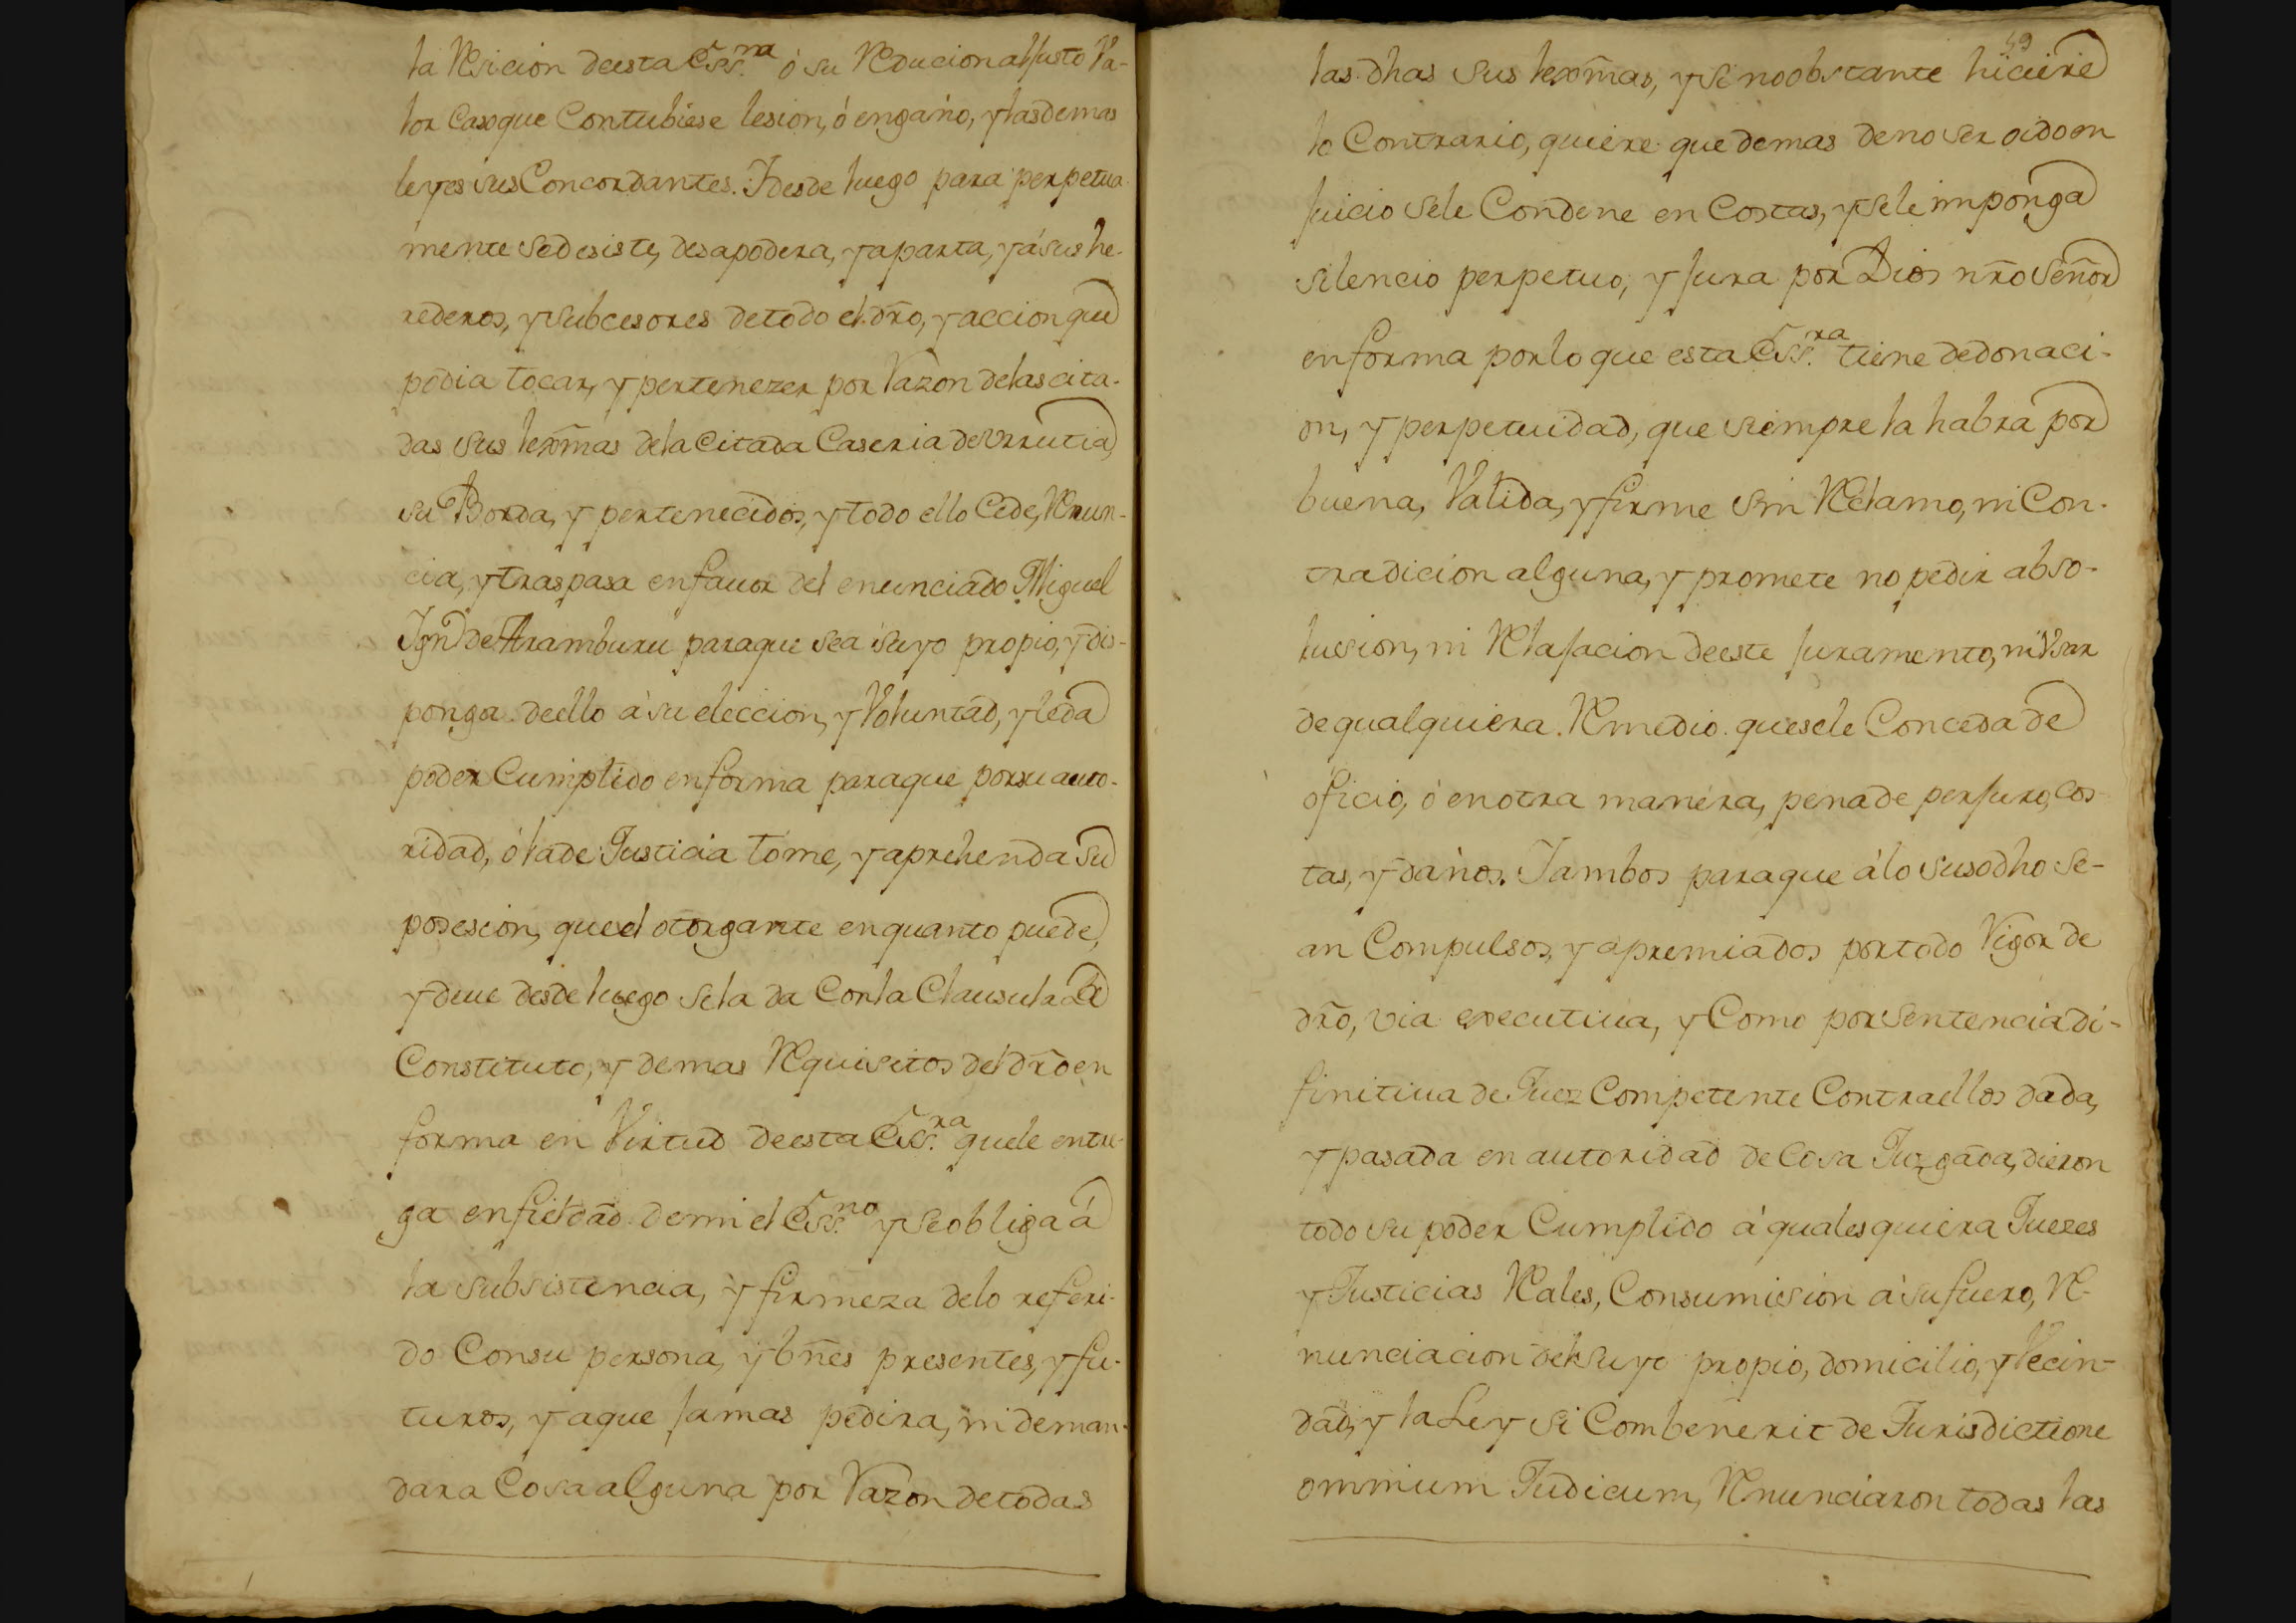 la Resicion deesta Essra. ó su Reducion al justo Va-
lor Casoque Contubiese lesion, ó engaño, y las demas
leyes sus Concordantes. I desde luego para perpetua
mente se desiste, desapodera, y aparta, y á sus he-
rederos, y subcesores de todo el dr̃o, y accion que
podia tocar, y pertenezer por Razon de las cita-
das sus lexm̃as de la Citada Caseria de Vrrutia
su Borda, y pertenecidos, y todo ello Cede, Renun-
cia, y traspasa en fauor del enunciado Miguel
Ign.º de Aramburu paraque sea suyo propio, y dis-
ponga deello á su eleccion, y Voluntad, y le da
poder Cumplido en forma paraque por su auto-
ridad, ó la de Justicia tome, y aprehenda su
posesion, que el otorgante en quanto puede,
y deue desde luego se la da Con la Clausula de
Constituto, y demas Requisitos del dr̃o en
forma en Virtud deesta Essra. que le entre-
ga en fieldad de mi el Essno. y se obliga á
la subsistencia, y firmeza de lo referi-
do Con su persona, y bñes presentes, y fu-
turos, y aque jamas pedira, ni deman-
dara Cosa alguna por Razon de todas
49
las dhas sus lexm̃as, y si no obstante hiciere
lo Contrario, quiere que demas de no ser oido en
juicio se le Condene en Costas, y se le imponga
silencio perpetuo, y jura por Dios nr̃o Señor
en forma por lo que esta Essra. tiene de donaci-
on, y perpetuidad, que siempre la habra por
buena, Valida, y firme sin Reclamo, ni Con-
tradicion alguna, y promete no pedir abso-
lucion, ni Relajacion deeste juramento, ni Vsar
de qualquiera Remedio que se le Conceda de
oficio, ó en otra manera, pena de perjuro, cos-
tas, y daños. I ambos paraque á lo susodho se-
an Compulsos, y apremiados por todo Vigor de
dr̃o, via executiua, y Como por Sentencia di-
finitiua de Juez Competente Contra ellos dada,
y pasada en autoridad de Cosa Juzgada, dieron
todo su poder Cumplido á qualesquiera Juezes
y Justicias Reales, Con sumision á su fuero, Re-
nunciacion del suyo propio, domicilio, y Vecin-
dad, y la Ley si Combenerit de Jurisdictione
omnium Judicum, Renunciaron todas las